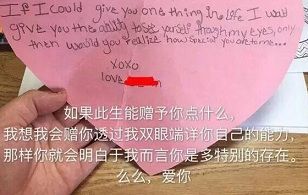 If I could give you one thing in life I would
give you the ability to see yourself through my eyes, only
then would you realize how special you are to me...
XOXO
love
如果此生能赠予你点什么，
我想我会赠你透过我双眼端详你自己的能力，
那样你就会明白于我而言你是多特别的存在。
么么，爱你